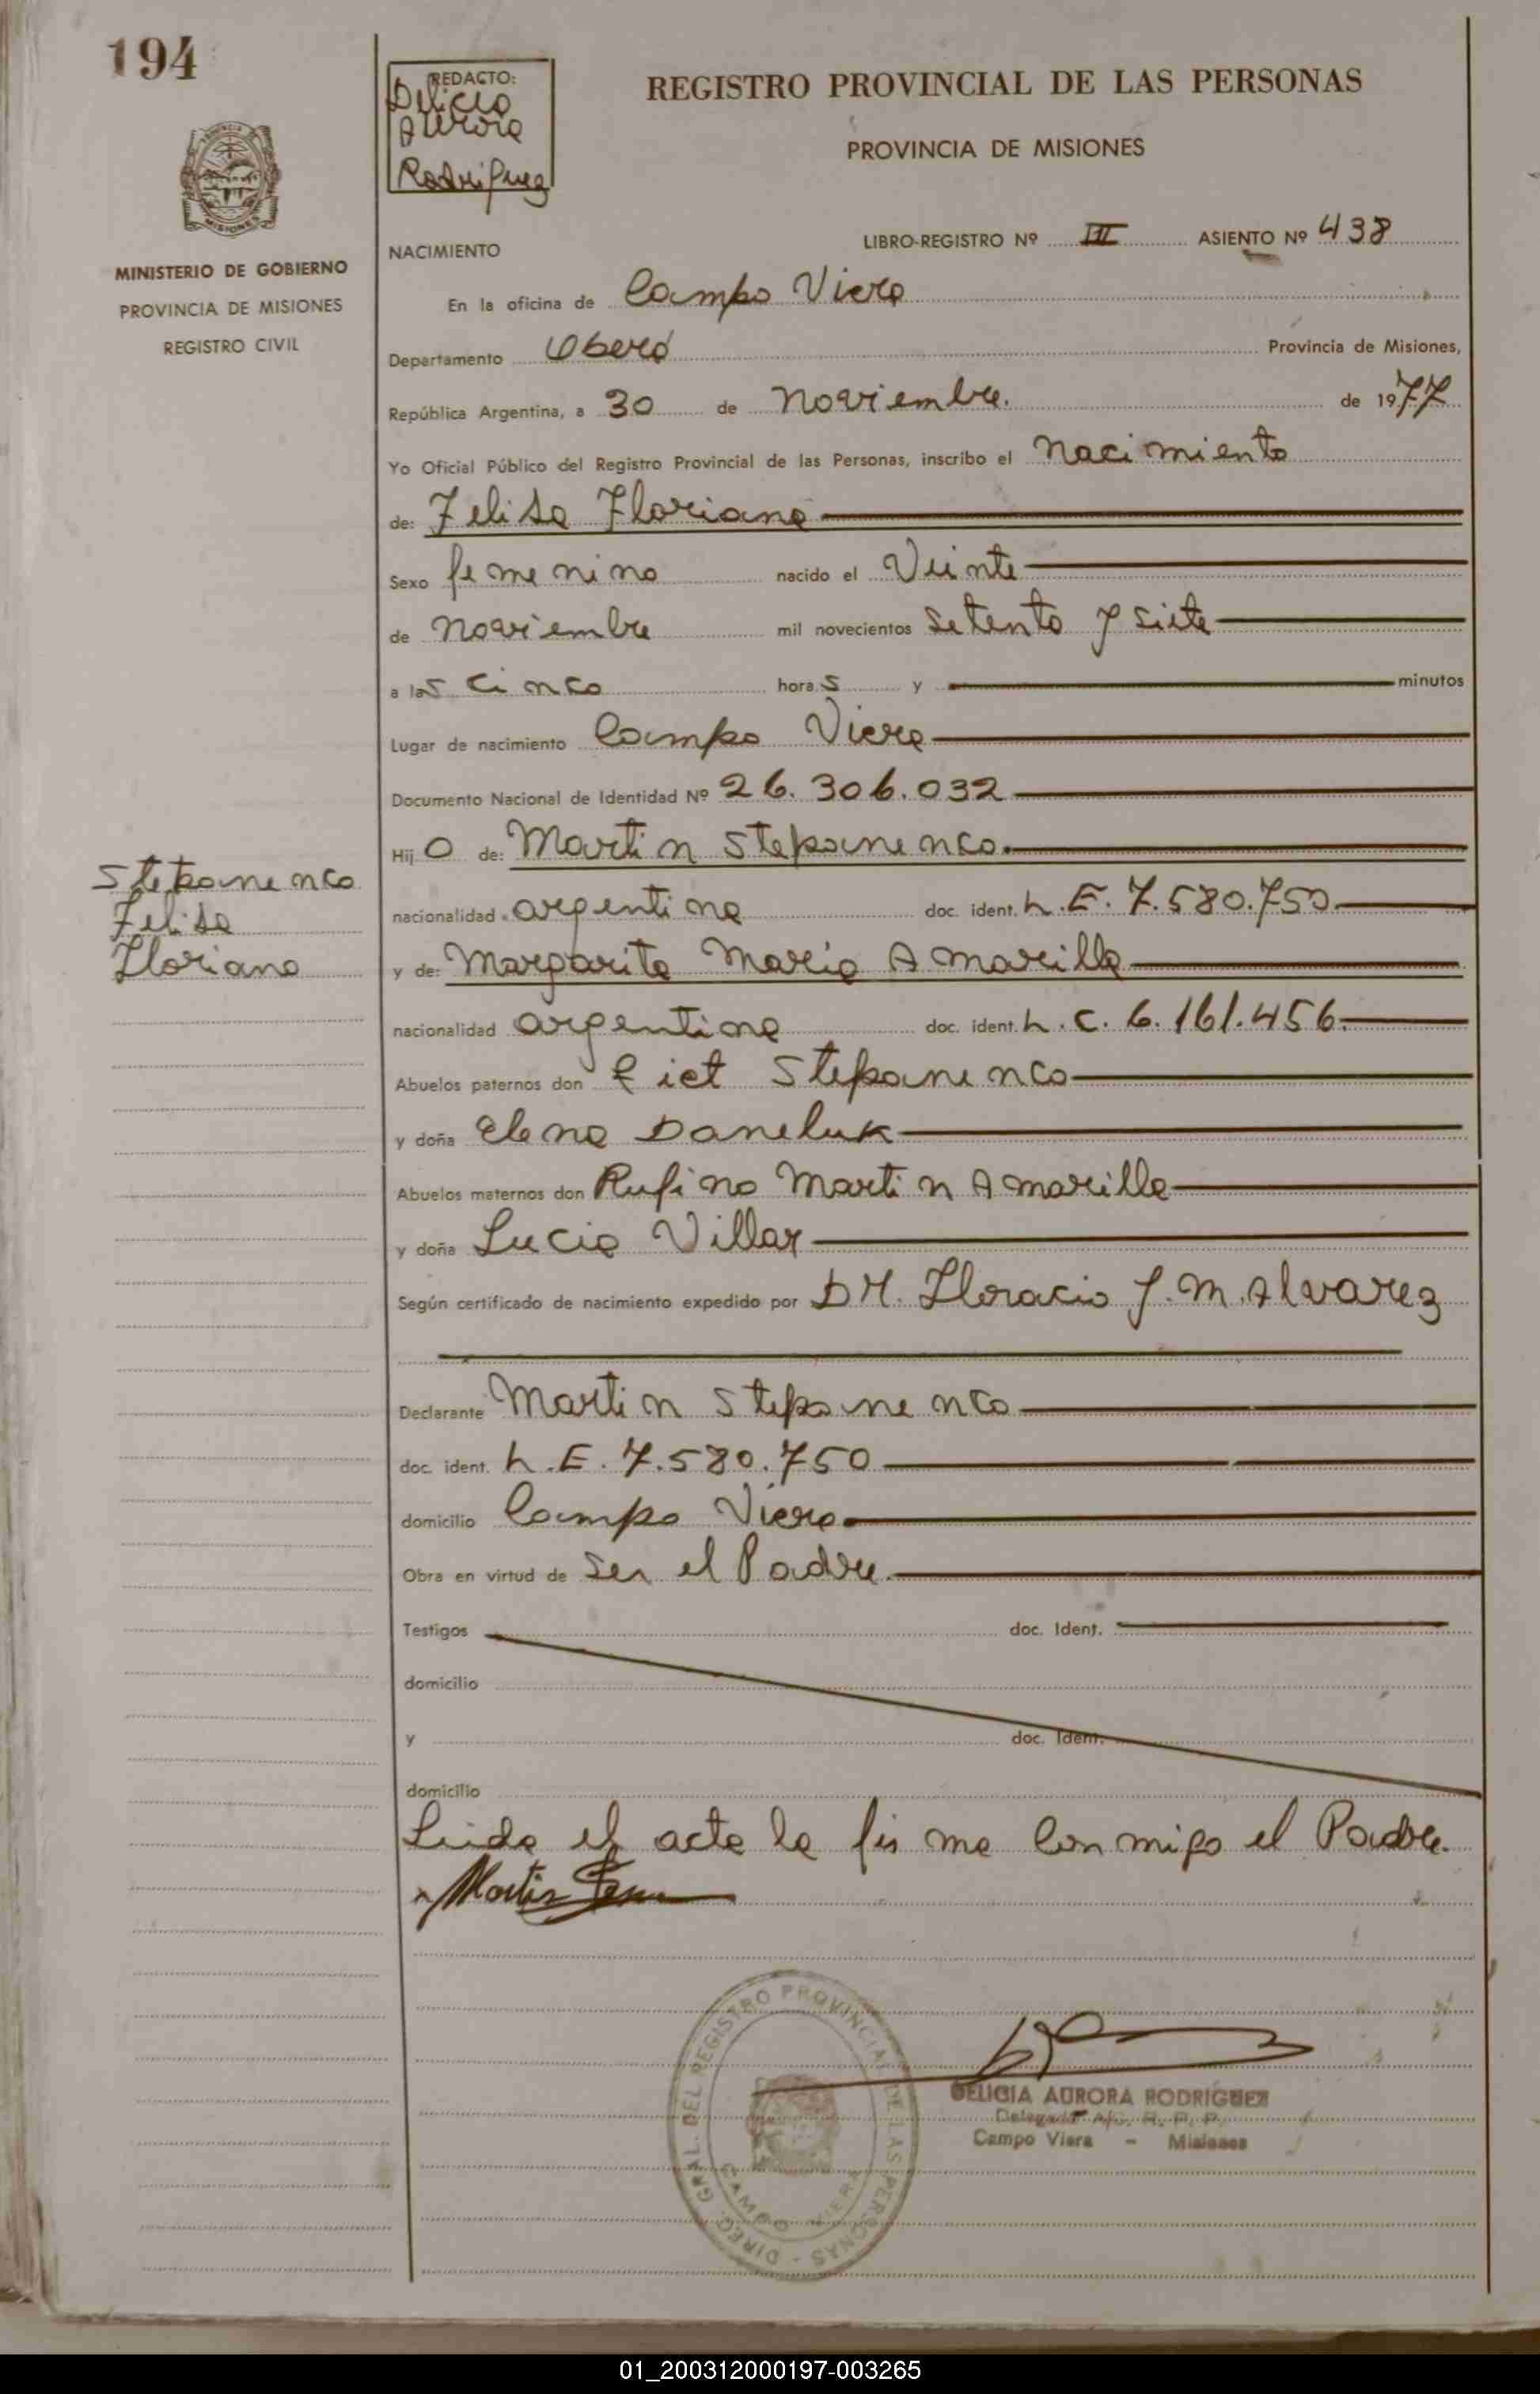 194
REDACTO:
Delicia
Aurora
Rodriguez
REGISTRO PROVINCIAL DE LAS PERSONAS
PROVINCIA DE MISIONES
MINISTERIO DE GOBIERNO
PROVINCIA DE MISIONES
REGISTRO CIVIL
NACIMIENTO
LIBRO-REGISTRO Nº III ASIENTO Nº 438
En la oficina de Campo Viera
Departamento Oberá Provincia de Misiones,
República Argentina, a 30 de Noviembre. de 1977
Yo Oficial Público del Registro Provincial de las Personas, inscribo el Nacimiento
de: Felisa Floriana
Sexo femenino nacido el Veinte
de Noviembre mil novecientos setenta y siete
a las cinco horas y minutos
Lugar de nacimiento Campo Viera
Documento Nacional de Identidad Nº 26.306.032
Hijo de: Martin Stepanenco.
Stepanenco
Felisa
Floriana
nacionalidad argentina doc. ident. L.E. 7.580.750
y de: Margarita Maria Amarilla
nacionalidad argentina doc. ident. L.C. 6.161.456.
Abuelos paternos don Stepanenco
y doña Elena Daneluk
Abuelos maternos don Rufino Martin Amarilla
y doña Lucia Villar
Según certificado de nacimiento expedido por DR. Horacio J.M. Alvarez
Declarante Martin Stepanenco
doc. ident. L.E. 7.580.750
domicilio Campo Viera
Obra en virtud de Ser el Padre.
Testigos doc. Ident.
domicilio
y doc. Ident.
domicilio
Leida el acta la firma conmigo el Padre.
Martin
DIREC. GRAL. DEL REGISTRO PROVINCIAL DE LAS PERSONAS
CAMPO VIERA
DELICIA AURORA RODRIGUEZ
Delegada A/c. R. P. P.
Campo Viera - Misiones
01_200312000197-003265